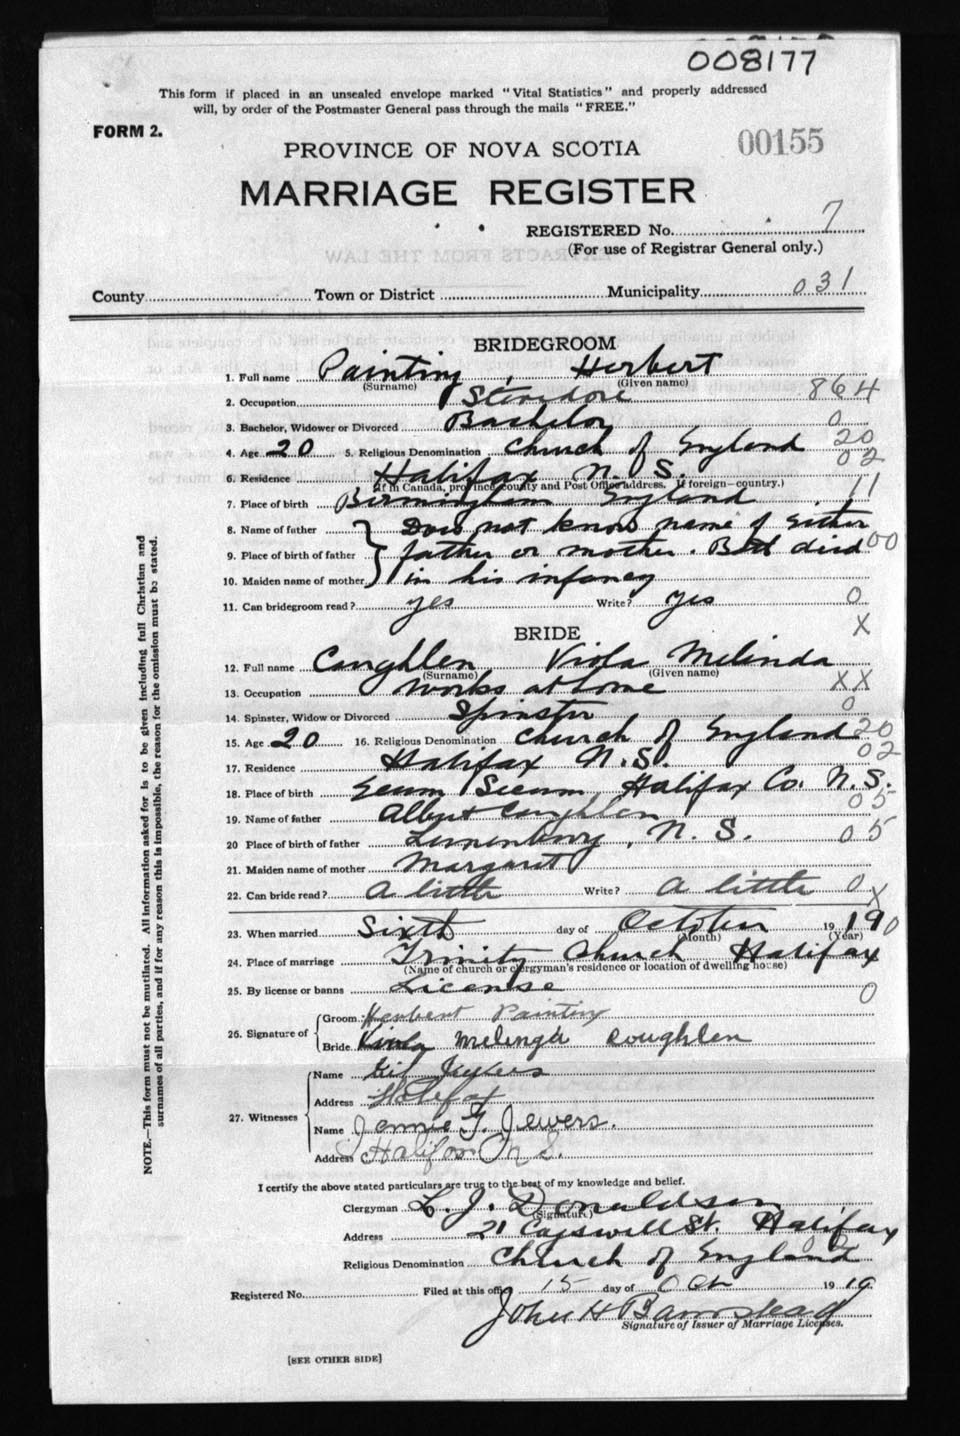 008177
This form if placed in an unsealed envelope marked "Vital Statistics" and properly addressed
will, by order of the Postmaster General pass through the mails "FREE."
FORM 2.
00155
PROVINCE OF NOVA SCOTIA
MARRIAGE REGISTER
REGISTERED No. 7
(For use of Registrar General only.)
County Town or District Municipality 031
BRIDEGROOM
1. Full name Painting, Herbert
(Surname) (Given name)
2. Occupation Stevedore 864
3. Bachelor, Widower or Divorced Bachelor 0
4. Age 20 5. Religious Denomination Church of England 20
02
6. Residence Halifax N. S.
(If in Canada, province, county and Post Office address. If foreign—country.)
7. Place of birth Birmingham England 11
8. Name of father Does not know name of either
9. Place of birth of father father or mother. Both died 00
10. Maiden name of mother in his infancy
11. Can bridegroom read? yes Write? yes 0
X
BRIDE
12. Full name Coughlen, Viola Melinda
(Surname) (Given name)
13. Occupation Works at home XX
14. Spinster, Widow or Divorced Spinster 0
15. Age 20 16. Religious Denomination Church of England 20
02
17. Residence Halifax N.S.
18. Place of birth Ecum Secum, Halifax Co. N.S.
05
19. Name of father Albert Coughlen
20 Place of birth of father Lunenburg, N. S. 05
21. Maiden name of mother Margaret
22. Can bride read? A little Write? A little 0
X
23. When married Sixth day of October 19 19 0
(Month) (Year)
24. Place of marriage Trinity Church Halifax
(Name of church or clergyman's residence or location of dwelling house)
25. By license or banns License 0
26. Signature of Groom Herbert Painting
Bride Viola Melinda Coughlen
27. Witnesses
Name Jewers
Address Halifax
Name Jennie G. Jewers.
Address Halifax N S.
I certify the above stated particulars are true to the best of my knowledge and belief.
Clergyman L. J. Donaldson
(Signature)
Address 21 Cogswell St. Halifax
Religious Denomination Church of England
Registered No. Filed at this office 15 day of Oct 19 19
John H Barnstead
Signature of Issuer of Marriage Licenses.
[SEE OTHER SIDE]
NOTE.—This form must not be mutilated. All information asked for is to be given including full Christian and
surnames of all parties, and if for any reason this is impossible, the reason for the omission must be stated.